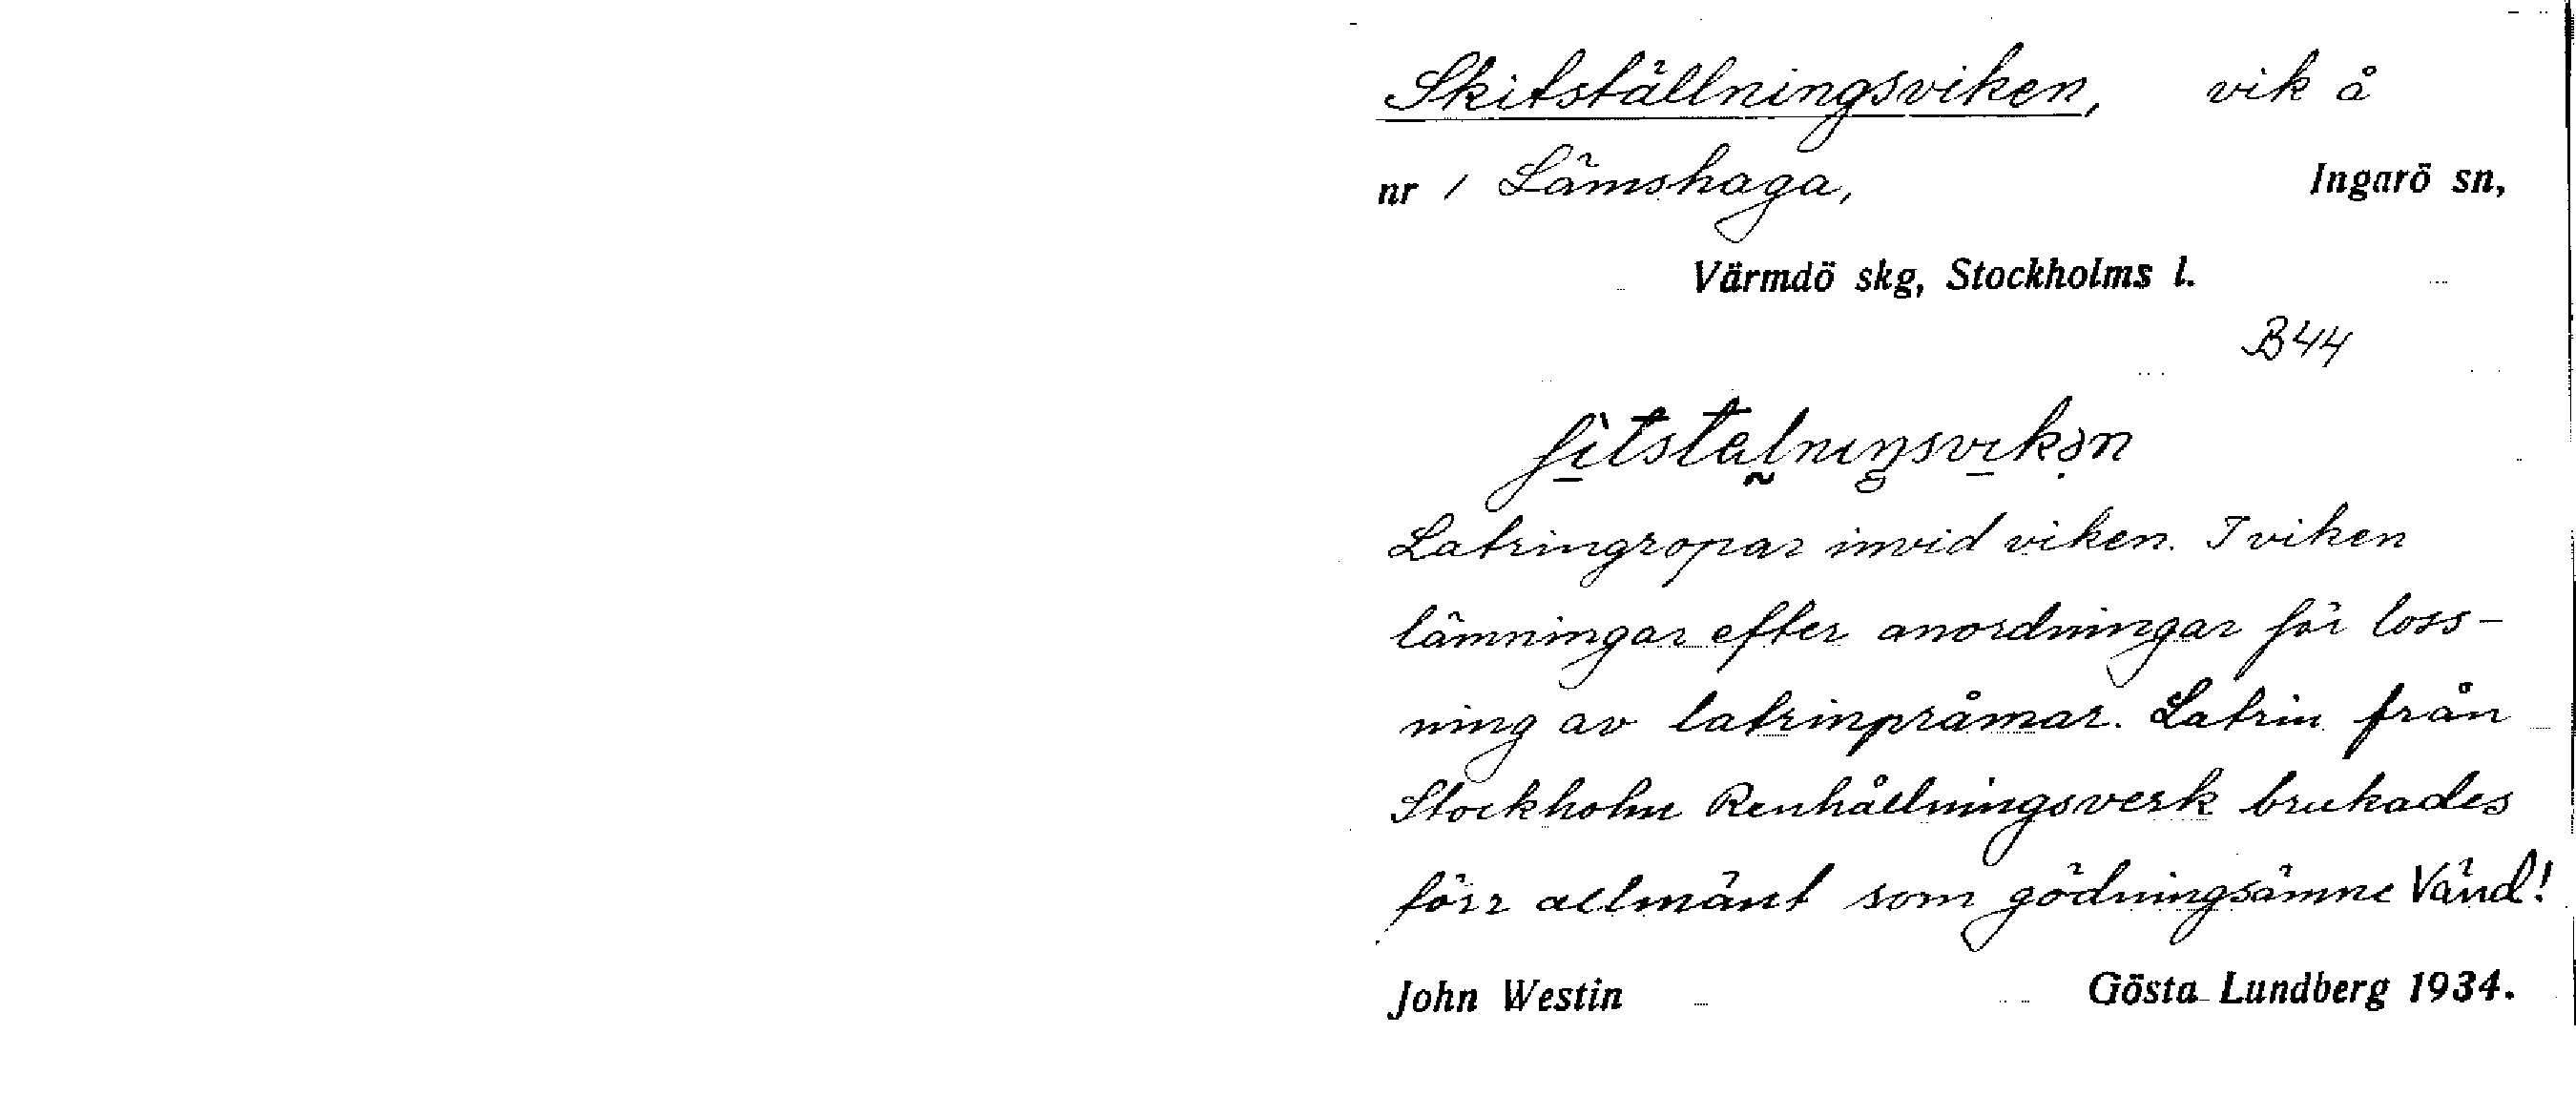 Skitställningsviken, vik å
nr 1 Lämshaga, Ingarö sn,
Värmdö skg, Stockholms l.
B44
ʃi̠tstal̰nıŋsvı̠kən
Latringropar invid viken. I viken
lämningar efter anordningar för loss-
ning av latrinpråmar. Latrin från
Stockholm Renhållningsverk brukades
förr allmänt som gödningsämne Vänd!
John Westin Gösta Lundberg 1934.